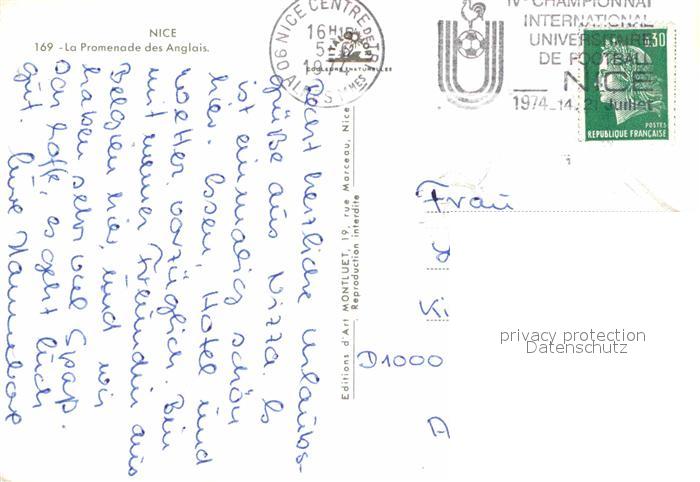 NICE
169 - La Promenade des Anglais.
06 NICE CENTRE DE TRI
16H
5
19
ALPES MMES
COULEURS NATURELLES
IVe CHAMPIONNAT
INTERNATIONAL
UNIVERSITAIRE
DE FOOTBALL
NICE
1974 - 14 - 21 Juillet
0,30
POSTES
REPUBLIQUE FRANÇAISE
Recht herzliche Urlaubs-
grüße aus Nizza. Es
ist einmalig schön
hier. Essen, Hotel und
Wetter vorzüglich. Bin
mit meiner Freundin aus
Belgien hier und wir
haben sehr viel Spaß.
Ich hoffe, es geht Euch
gut. Eure Hannelore
Editions d'Art MONTLUET, 19, rue Marceau, Nice
Reproduction interdite
Frau
Ki
D1000
privacy protection
Datenschutz